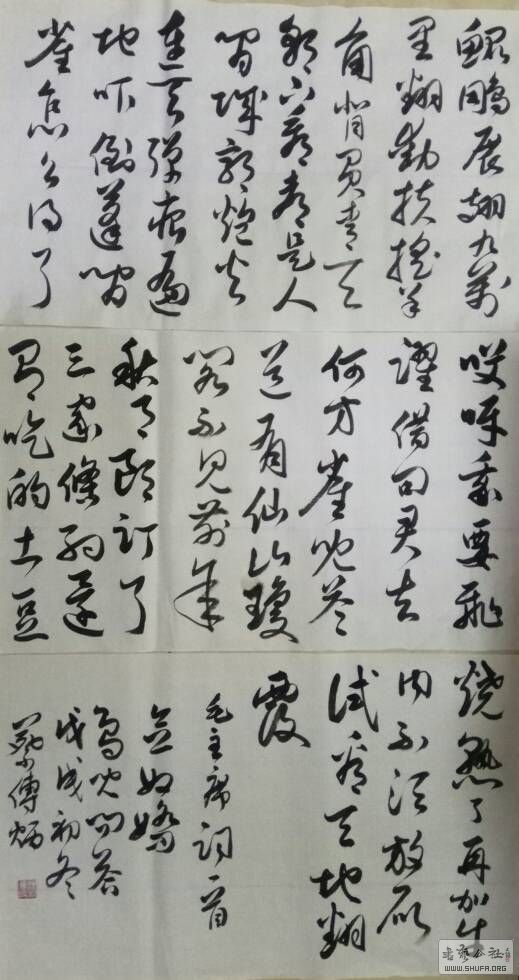 鲲鹏展翅九萬
里翻動扶摇羊
角背负青天
朝下看都是人
间城郭炮火
连天弹痕遍
地吓倒蓬间
雀怎么得了
哎呀我要飛
躍借问君去
何方雀儿答
道有仙山瓊
阁不见前年
秋月朗订了
三家條约还
有吃的土豆
烧熟了再加牛
肉不须放屁
试看天地翻
覆
毛主席词一首
念奴嬌
鸟儿问答
戊戌初冬
書藝公社
WWW.SHUFA.ORG